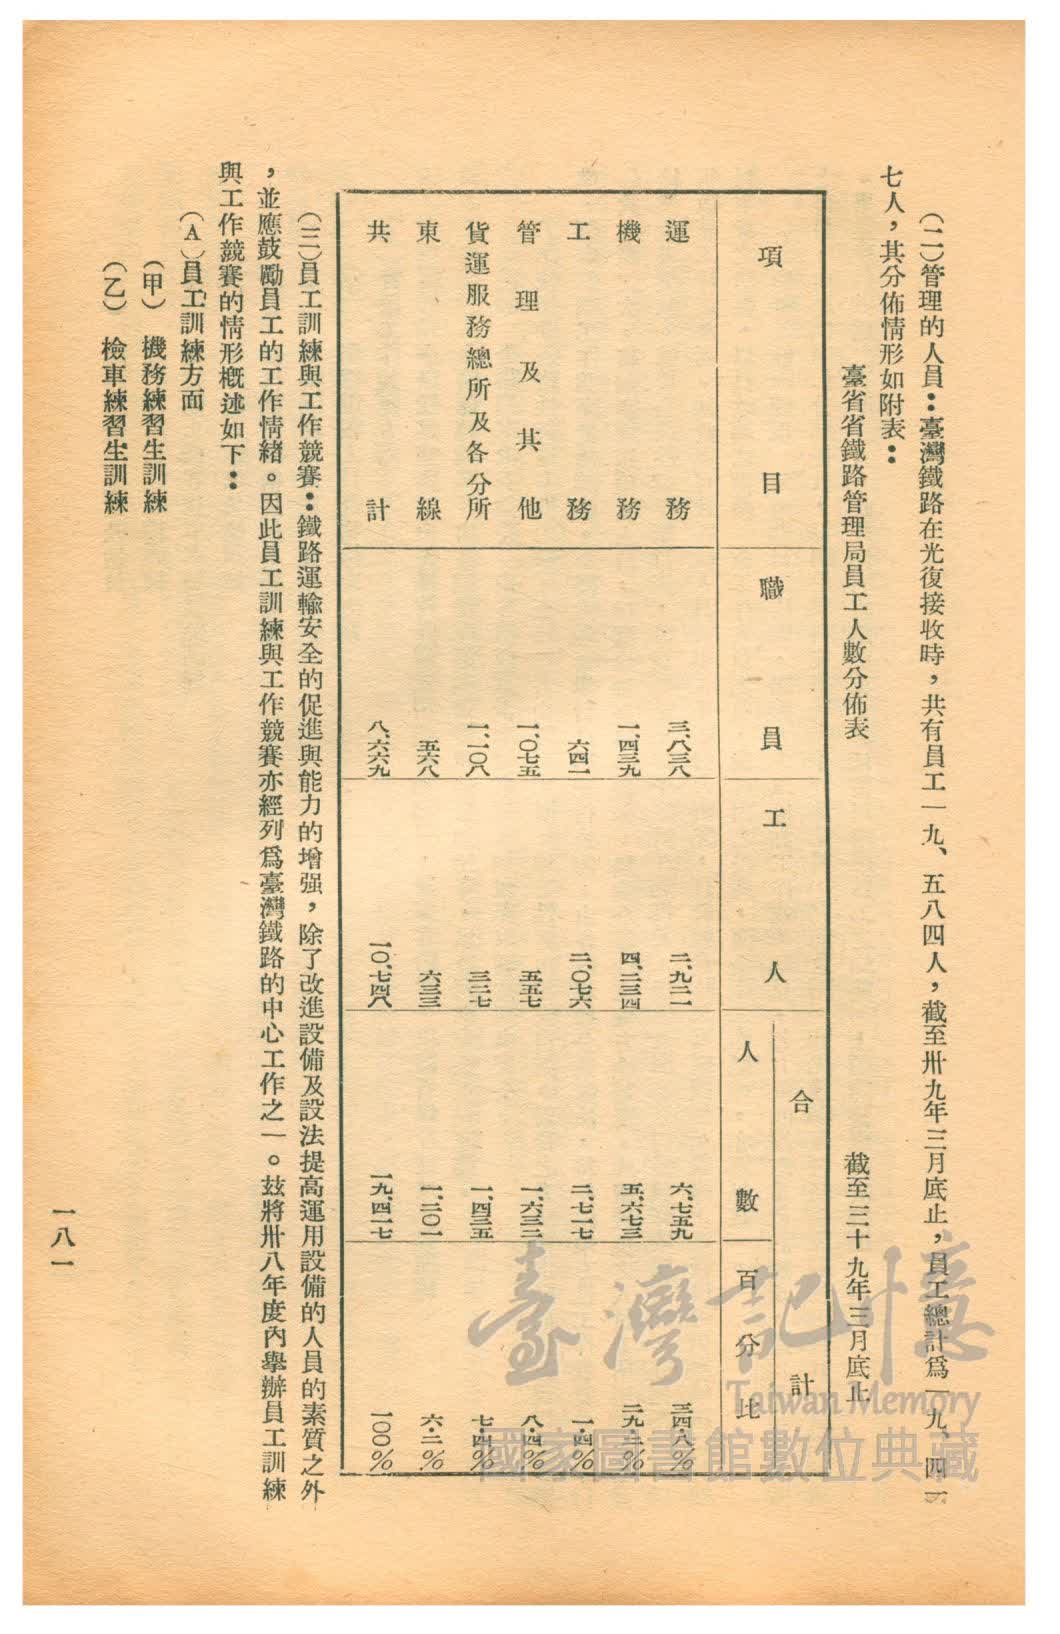 (二)管理的人員：臺灣鐵路在光復接收時，共有員工一九、五八四人，截至卅九年三月底止，員工總計爲一九、四一
七人，其分佈情形如附表：
臺省省鐵路管理局員工人數分佈表　截至三十九年三月底止
項目　職員　工人　合計　人數　百分比
運務　三、八三八　二、九二一　六、七五九　三四·八%
機務　一、四三九　四、二三四　五、六七三　二九·二%
工務　六四一　二、〇七六　二、七一七　一·四%
管理及其他　一、〇七五　五五七　一、六三二　八·四%
貨運服務總所及各分所　一、一〇八　三二七　一、四三五　七·四%
東線　五六八　六三三　一、二〇一　六·二%
共計　八、六六九　一〇、七四八　一九、四一七　一〇〇%
(三)員工訓練與工作競賽：鐵路運輸安全的促進與能力的增强，除了改進設備及設法提高運用設備的人員的素質之外
，並應鼓勵員工的工作情緒。因此員工訓練與工作競賽亦經列爲臺灣鐵路的中心工作之一。玆將卅八年度內舉辦員工訓練
與工作競賽的情形概述如下：
(A)員工訓練方面
(甲)　機務練習生訓練
(乙)　檢車練習生訓練
一八一
臺灣記憶
Taiwan Memory
國家圖書館數位典藏